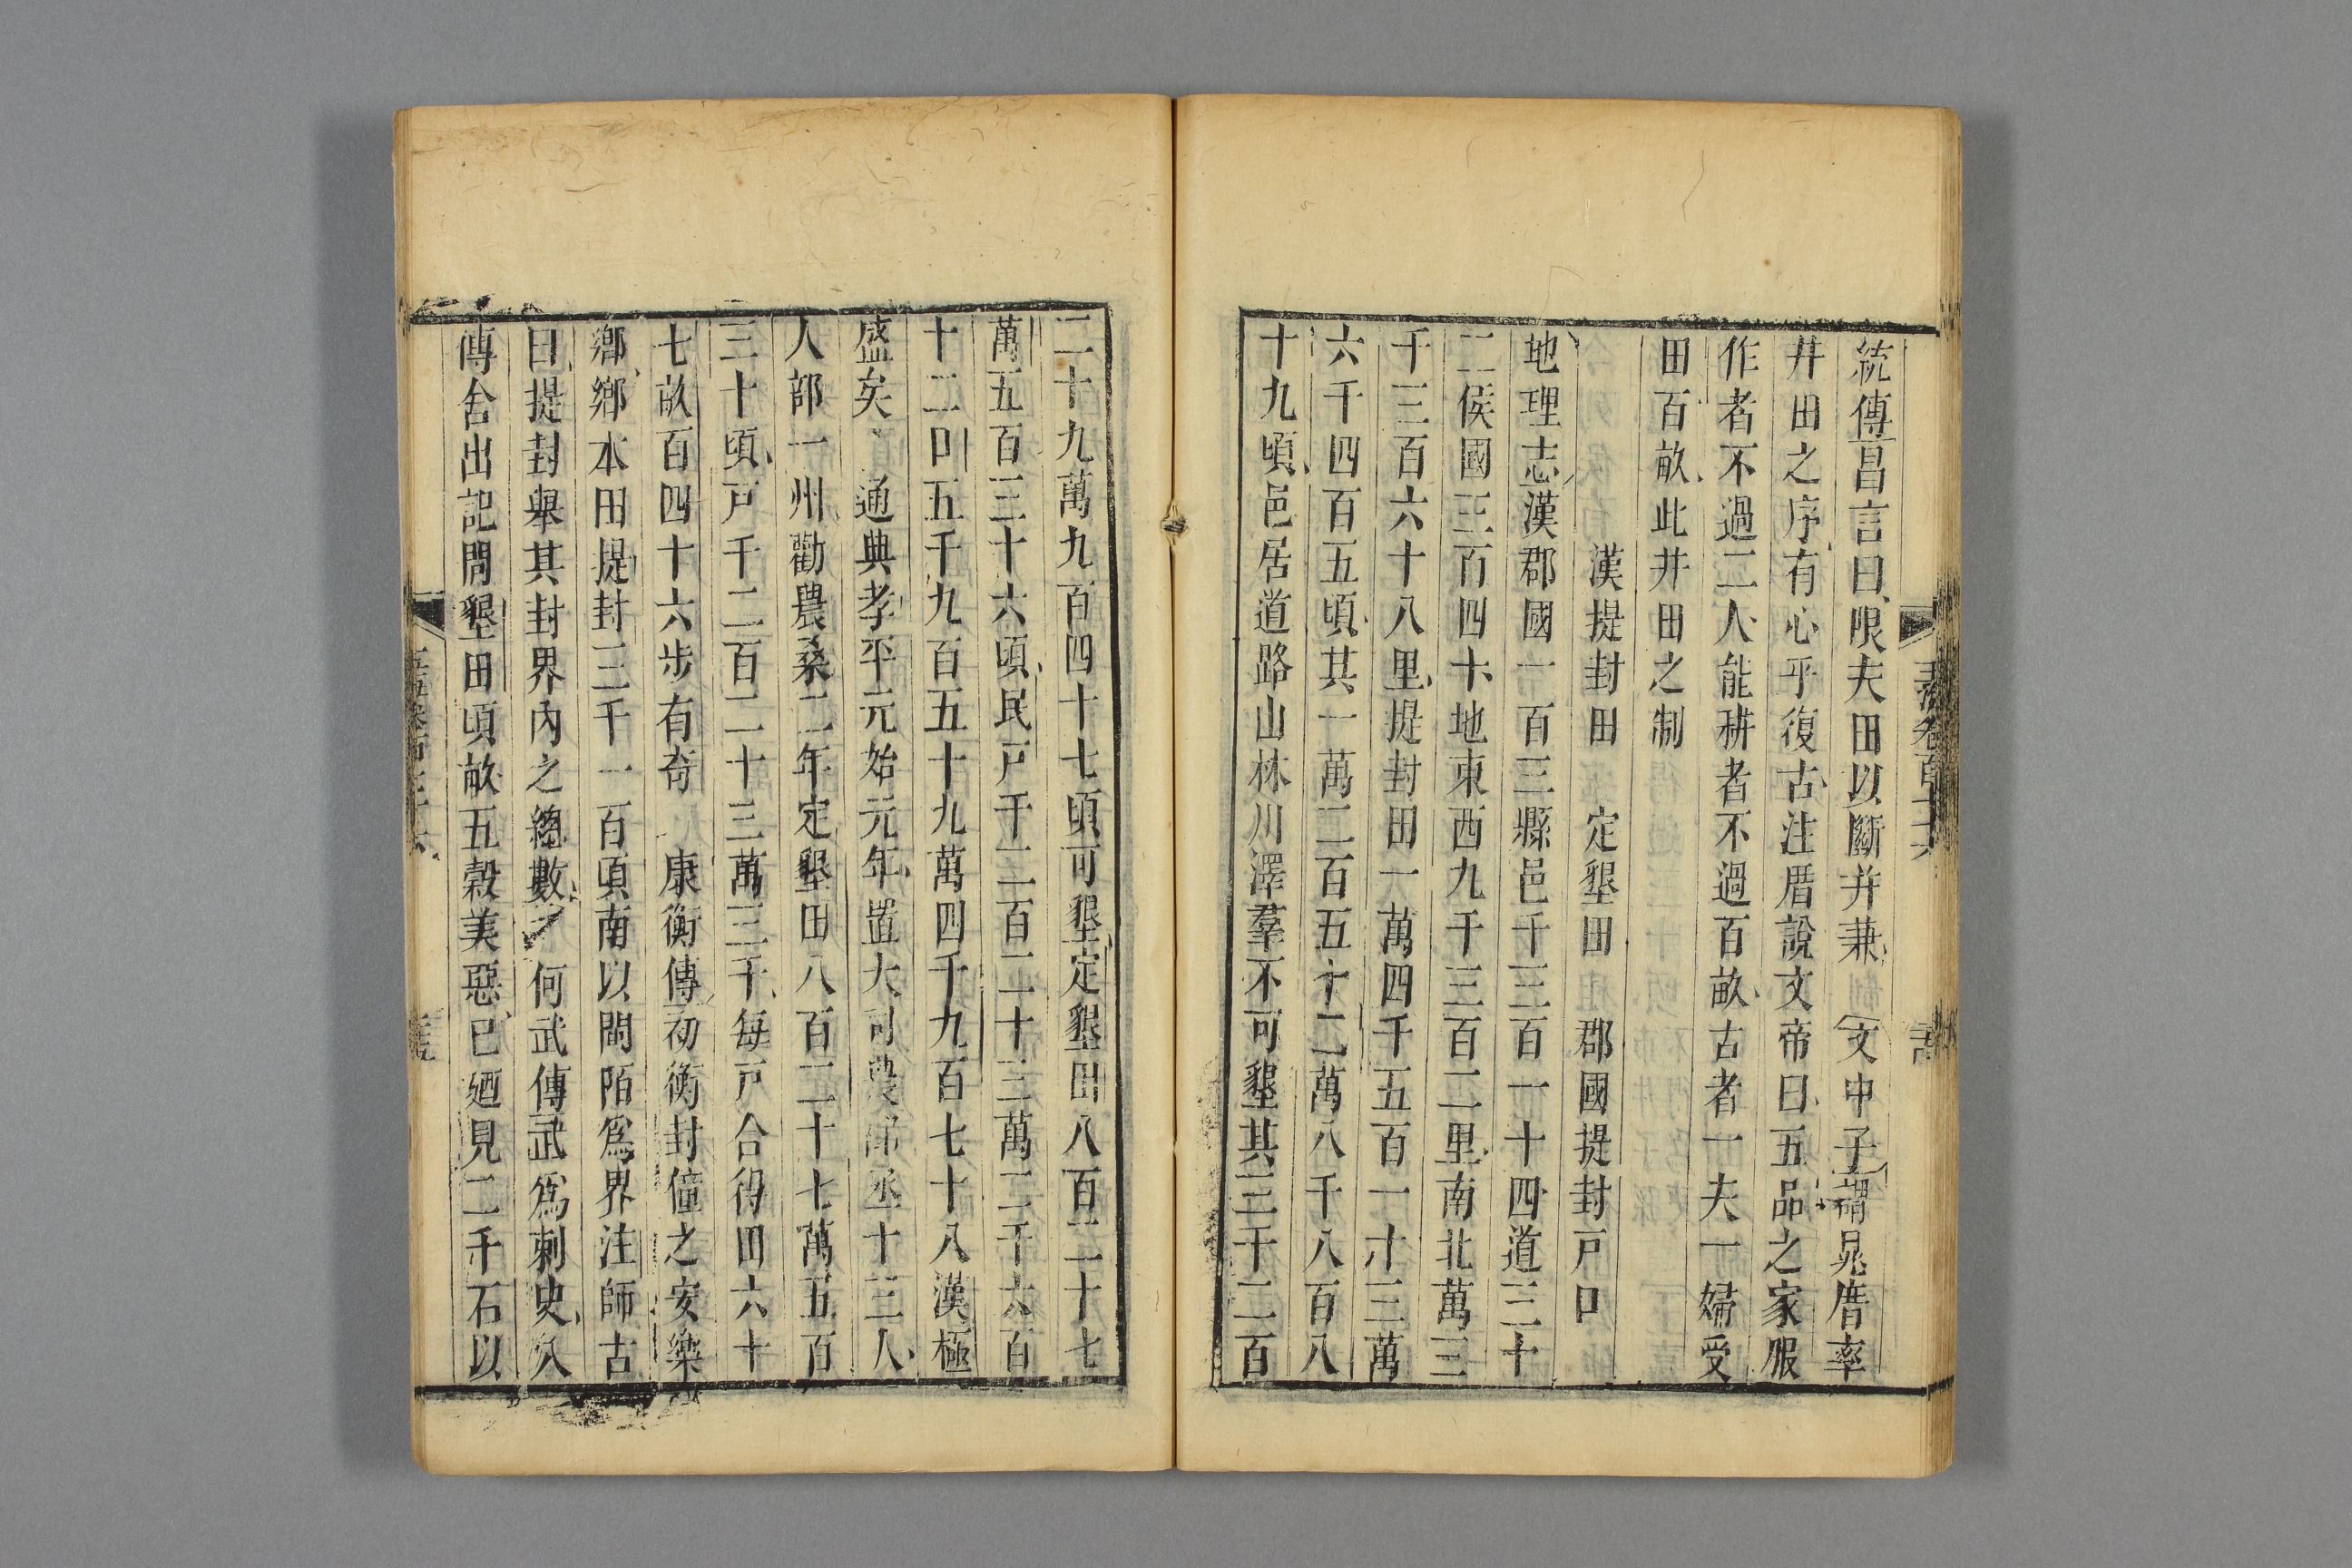 統傳昌言曰限夫田以斷并兼 文中子謂晁厝率
井田之序有心乎復古注厝說文帝曰五品之家服
作者不過二人能耕者不過百畝古者一夫一婦受
田百畝此井田之制
漢提封田 定墾田 郡國提封戸口
地理志漢郡國一百三縣邑千三百一十四道三十
二侯國二百四十地東西九千三百二里南北萬三
千三百六十八里提封田一萬四千五百一十三萬
六千四百五頃其一萬二百五十二萬八千八百八
十九頃邑居道路山林川澤羣不可墾其三千二百
二十九萬九百四十七頃可墾定墾田八百二十七
萬五百三十六頃民戸千二百二十三萬二千六百
十二口五千九百五十九萬四千九百七十八漢極
盛矣 通典孝平元始元年置大司農部丞十三人
人部一州勸農桑二年定墾田八百二十七萬五百
三十頃戸千二百二十三萬三千每戸合得田六十
七畝百四十六步有奇 康衡傳初衡封僮之安樂
鄉鄉本田提封三千一百頃南以閩陌爲界注師古
曰提封舉其封界內之總數 何武傳武爲刺史入
傳舍出記問墾田頃畝五穀美惡已廼見二千石以